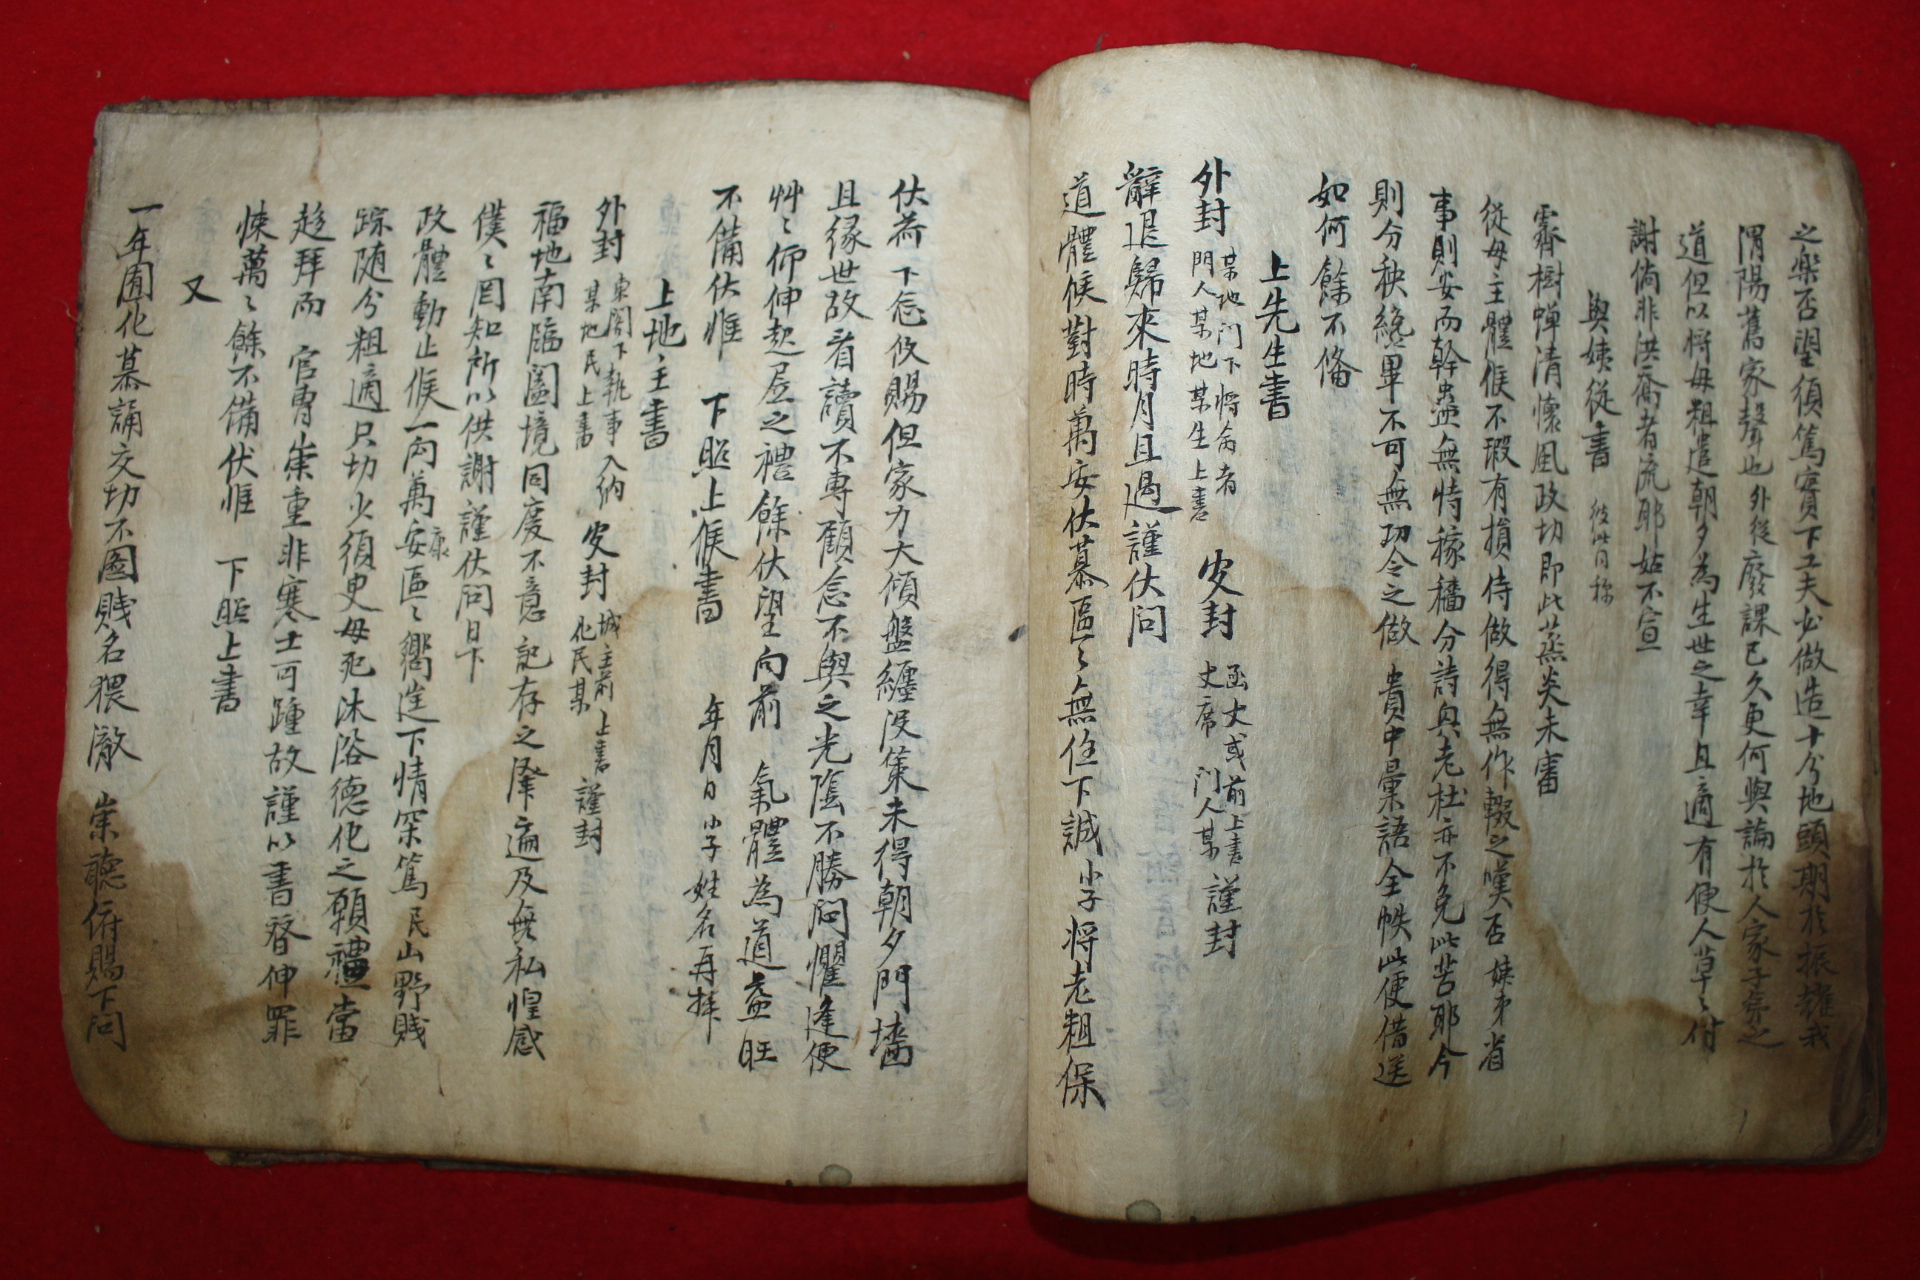 之樂否望須篤實下工夫必做造十分地頭期於振雄我
渭陽舊家聲也外從廢課已久更何與論於人家子弟之
道但以將母粗遣朝夕為生世之幸且適有便人草〻付
謝倘非洪喬者流耶姑不宣
與姨從書 彼此同称
霽樹蟬清懷風政切即此蒸炎未審
從母主體候不瑕有損侍做得無作輟之嘆否姨弟省
事則安而幹蠱無恃稼穡分詩與老杜亦不免此苦耶今
則分秧纔畢不可無功令之做 貴中彙語全帙此便借送
如何餘不俻
上先生書
外封 某地門下將命者 門人某地某生上書 皮封 函丈或前上書 丈席 門人某 謹封
辭退歸來時月且過謹伏問
道體候對時萬安伏慕區〻無任下誠 小子將老粗保
伏荷 下念攸賜但家力大傾盤纏沒策未得朝夕門墻
且緣世故看讀不專顧念不與之光陰不勝悶懼逢便
艸〻仰伸起居之禮餘伏望向前 氣體為道益旺
不備伏惟 下照上候書 年月日 小子 姓名再拜
上地〻主書
外封 東閣下執事入納 某地民上書 皮封 城主前 上書 化民某 謹封
福地南臨闔境同度不意 記存之降遍及無私惶感
僕〻罔知所以供謝謹伏問日下
政體動止候一向萬安康區〻嚮迬下情深篤民山野賤
踪随分粗適只切少須臾毋死沐浴德化之願禮當
趍拜而 官專崇重非寒士可踵故謹以書替伸罪
悚萬〻餘不備伏惟 下照上書
又
一年囿化慕誦交切不圖賤名猥澈 崇聽俯賜下問